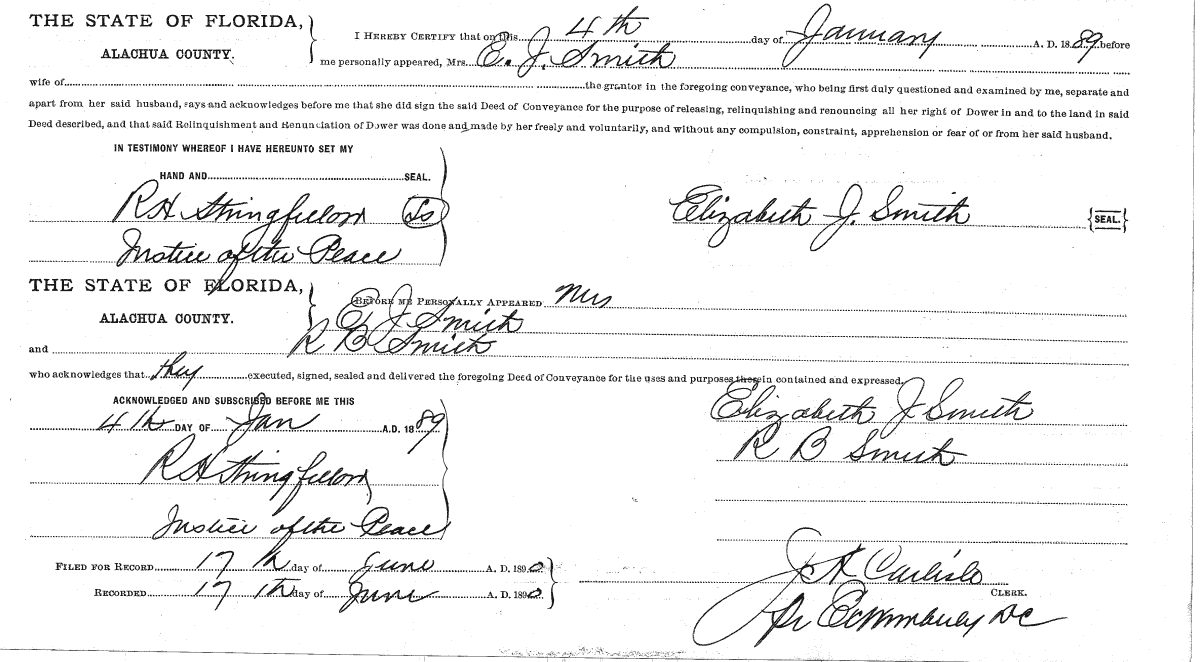 THE STATE OF FLORIDA,
ALACHUA COUNTY.
I HEREBY CERTIFY that on this 4th day of January A. D. 1889 before
me personally appeared, Mrs. E. J. Smith
wife of the grantor in the foregoing conveyance, who being first duly questioned and examined by me, separate and
apart from her said husband, says and acknowledges before me that she did sign the said Deed of Conveyance for the purpose of releasing, relinquishing and renouncing all her right of Dower in and to the land in said
Deed described, and that said Relinquishment and Renunciation of Dower was done and made by her freely and voluntarily, and without any compulsion, constraint, apprehension or fear of or from her said husband.
IN TESTIMONY WHEREOF I HAVE HEREUNTO SET MY
HAND AND SEAL.
R H Stringfellow
Justice of the Peace
Elizabeth J. Smith {SEAL.}
THE STATE OF FLORIDA,
ALACHUA COUNTY.
BEFORE ME PERSONALLY APPEARED Mrs
E J Smith
and R B Smith
who acknowledges that they executed, signed, sealed and delivered the foregoing Deed of Conveyance for the uses and purposes therein contained and expressed.
ACKNOWLEDGED AND SUBSCRIBED BEFORE ME THIS
4th DAY OF Jan A.D. 1889
R H Stringfellow
Justice of the Peace
Elizabeth J Smith
R B Smith
FILED FOR RECORD 17th day of June A. D. 1890
RECORDED 17th day of June A. D. 1890
Carlisle
CLERK.
DC